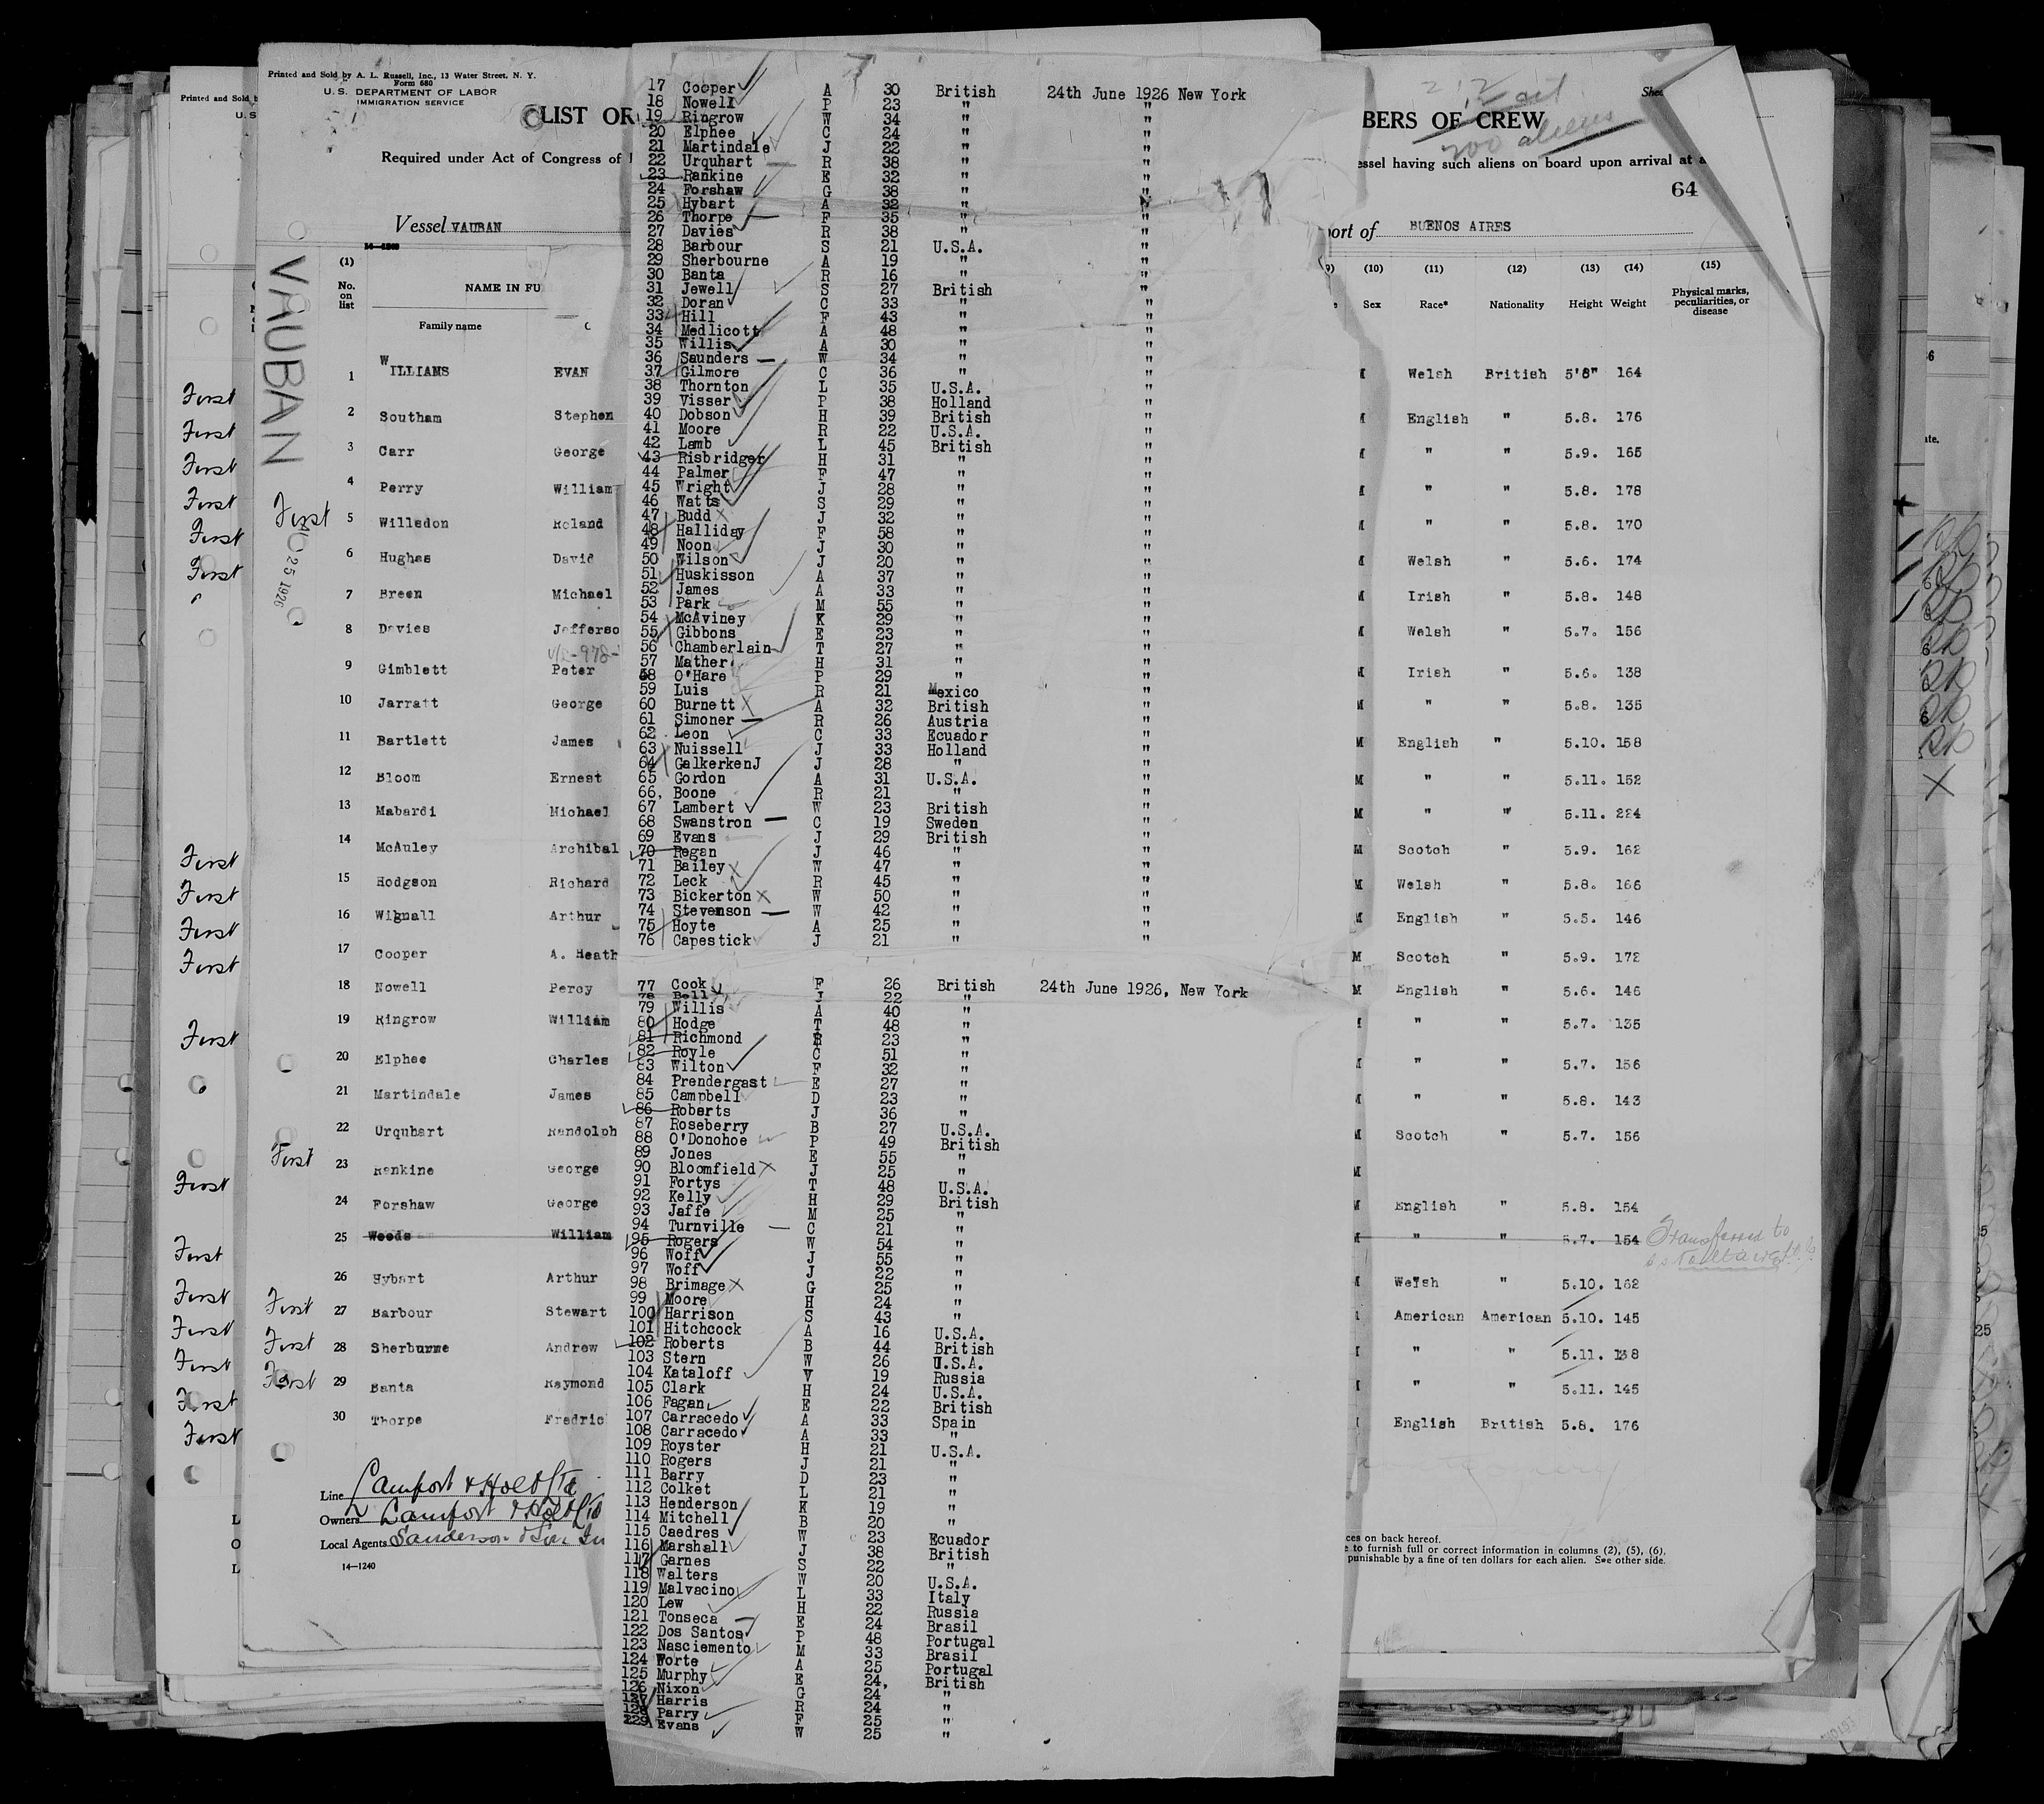 Printed and Sold by A. L. Russell, Inc., 13 Water Street, N. Y.
Form 680
U. S. DEPARTMENT OF LABOR
IMMIGRATION SERVICE
Printed and Sold b
U. S
LIST OR
Required under Act of Congress of
Vessel VAUBAN
VAUBAN
(1)
No. on list
NAME IN FU
Family name
1 WILLIANS EVAN
2 Southam Stephen
3 Carr George
4 Perry William
First 5 Willedon Roland
25 1926
6 Hughes David
7 Breen Michael
8 Davies Jefferso
9 Gimblett Peter
10 Jarratt George
11 Bartlett James
12 Bloom Ernest
13 Mabardi Michael
14 McAuley Archibal
15 Hodgson Richard
16 Wignall Arthur
17 Cooper A. Heath
18 Nowell Percy
19 Ringrow William
20 Elphee Charles
21 Martindale James
22 Urquhart Randolph
First 23 Rankine George
24 Forshaw George
25 Weeds William
26 Hybart Arthur
First 27 Barbour Stewart
First 28 Sherburne Andrew
First 29 Banta Raymond
30 Thorpe Fredric
Line Lamport & Holt Ltd
Owners Lamport & Holt Ltd
Local Agents Sanderson & Son In
14—1240
First
First
First
First
First
First
First
First
First
First
First
First
First
First
First
First
First
First
L
O
L
17 Cooper A 30 British 24th June 1926 New York
18 Nowell P 23 " "
19 Ringrow W 34 " "
20 Elphee C 24 " "
21 Martindale J 22 " "
22 Urquhart R 38 " "
23 Rankine E 32 " "
24 Forshaw G 38 " "
25 Hybart A 32 " "
26 Thorpe F 35 " "
27 Davies R 38 " "
28 Barbour S 21 U.S.A. "
29 Sherbourne A 19 " "
30 Banta R 16 " "
31 Jewell S 27 British "
32 Doran C 33 " "
33 Hill F 43 " "
34 Medlicott A 48 " "
35 Willis A 30 " "
36 Saunders W 34 " "
37 Gilmore C 36 " "
38 Thornton L 35 U.S.A. "
39 Visser P 38 Holland "
40 Dobson H 39 British "
41 Moore R 22 U.S.A. "
42 Lamb L 45 British "
43 Risbridger H 31 " "
44 Palmer F 47 " "
45 Wright J 28 " "
46 Watts S 29 " "
47 Budd J 32 " "
48 Halliday F 58 " "
49 Noon J 30 " "
50 Wilson J 20 " "
51 Huskisson A 37 " "
52 James A 33 " "
53 Park M 55 " "
54 McAviney K 29 " "
55 Gibbons E 23 " "
56 Chamberlain T 27 " "
57 Mather H 31 " "
58 O'Hare P 29 " "
59 Luis R 21 Mexico "
60 Burnett A 32 British "
61 Simoner R 26 Austria "
62 Leon C 33 Ecuador "
63 Nuissell J 33 Holland "
64 GalkerkenJ J 28 " "
65 Gordon A 31 U.S.A. "
66, Boone R 21 " "
67 Lambert W 23 British "
68 Swanstron C 19 Sweden "
69 Evans J 29 British "
70 Regan J 46 " "
71 Bailey W 47 " "
72 Leck R 45 " "
73 Bickerton W 50 " "
74 Stevenson W 42 " "
75 Hoyte A 25 " "
76 Capestick J 21 " "
77 Cook F 26 British 24th June 1926, New York
78 Bell J 22 "
79 Willis A 40 "
80 Hodge T 48 "
81 Richmond R 23 "
82 Royle C 51 "
83 Wilton F 32 "
84 Prendergast E 27 "
85 Campbell D 23 "
86 Roberts J 36 "
87 Roseberry B 27 U.S.A.
88 O'Donohoe P 49 British
89 Jones E 55 "
90 Bloomfield J 25 "
91 Fortys T 48 U.S.A.
92 Kelly H 29 British
93 Jaffe M 25 "
94 Turnville C 21 "
95 Rogers W 54 "
96 Woff J 55 "
97 Woff J 22 "
98 Brimage G 25 "
99 Moore H 24 "
100 Harrison S 43 "
101 Hitchcock A 16 U.S.A.
102 Roberts B 44 British
103 Stern W 26 U.S.A.
104 Kataloff V 19 Russia
105 Clark H 24 U.S.A.
106 Fagan E 22 British
107 Carracedo A 33 Spain
108 Carracedo A 33 "
109 Royster H 21 U.S.A.
110 Rogers J 21 "
111 Barry D 23 "
112 Colket L 21 "
113 Henderson K 19 "
114 Mitchell B 20 "
115 Caedres W 23 Ecuador
116 Marshall J 38 British
117 Garnes S 22 "
118 Walters W 20 U.S.A.
119 Malvacino L 33 Italy
120 Lew H 22 Russia
121 Tonseca E 24 Brasil
122 Dos Santos P 48 Portugal
123 Nasciemento M 33 Brasil
124 Forte A 25 Portugal
125 Murphy E 24, British
126 Nixon G 24 "
127 Harris R 24 "
128 Parry F 25 "
229 Evans W 25 "
212 all
200 aliens
Shee
BERS OF CREW
essel having such aliens on board upon arrival at a
64
port of BUENOS AIRES
(10) (11) (12) (13) (14) (15)
Sex Race* Nationality Height Weight Physical marks, peculiarities, or disease
M Welsh British 5'8" 164
English " 5.8. 176
" " 5.9. 165
" " 5.8. 178
" " 5.8. 170
Welsh " 5.6. 174
M Irish " 5.8. 148
Welsh " 5.7. 156
M Irish " 5.6. 138
M " " 5.8. 135
M English " 5.10. 158
M " " 5.11. 152
M " " 5.11. 224
M Scotch " 5.9. 162
M Welsh " 5.8. 166
M English " 5.5. 146
M Scotch " 5.9. 172
M English " 5.6. 146
" " 5.7. 135
" " 5.7. 156
M " " 5.8. 143
M Scotch " 5.7. 156
M
M English " 5.8. 154
" " 5.7. 154 Transferred to
Welsh " 5.10. 162
American American 5.10. 145
" " 5.11. 138
" " 5.11. 145
English British 5.8. 176
ces on back hereof.
e to furnish full or correct information in columns (2), (5), (6),
punishable by a fine of ten dollars for each alien. See other side.